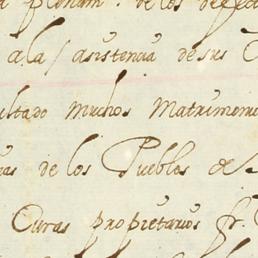 de los defec
a la / asistencia de sus C
ultado muchos Matrimonio
as de los Pueblos de
Curas propietarios fr.